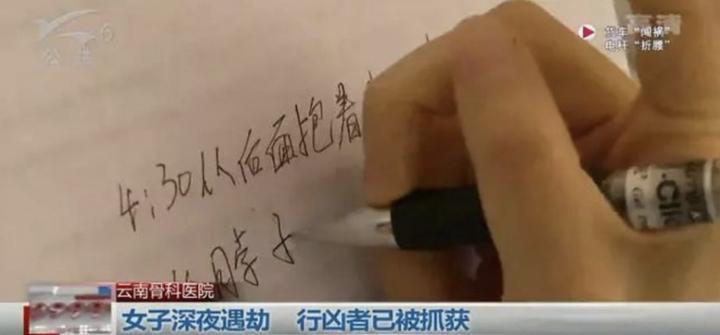 公共 6
高清
货车“闯祸”
电杆“折腰”
4:30从后面抱着
脖子
云南骨科医院
女子深夜遇劫 行凶者已被抓获